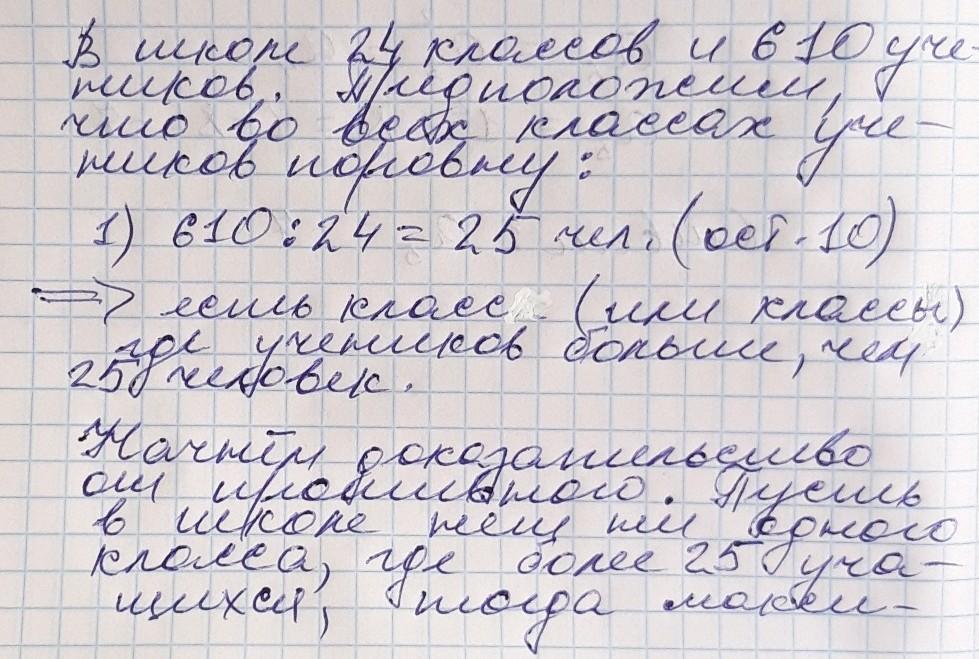 В школе 24 классов и 610 уче-
ников. Предположим,
что во всех классах уче-
ников поровну:
1) 610 : 24 = 25 чел. (ост. 10)
=> есть класс (или классы)
где учеников больше, чем
25 человек.
Начнём доказательство
от противного. Пусть
в школе нет ни одного
класса, где более 25 уча-
щихся, тогда макси-